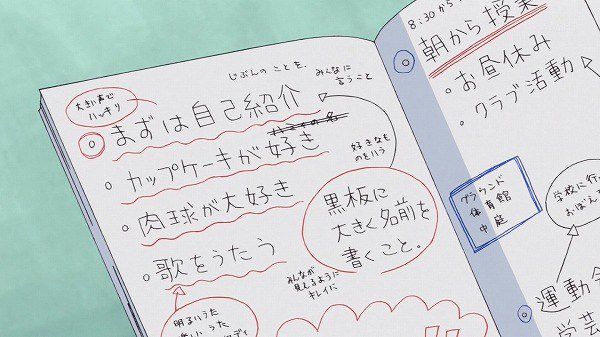 じぶんの ことを、みんなに
言うこと
大きい声で
ハッキリ
まずは自己紹介
カップケーキが好き
好きなも
のをいう
肉球が大好き
歌をうたう
黒板に
大きく名前を
書くこと。
みんなが
見えるように
キレイに
明るいうた
8:30から
朝から授業
・お昼休み
・クラブ活動
グラウンド
体育館
中庭
学校に行っ
おぼえ
運動会
学芸